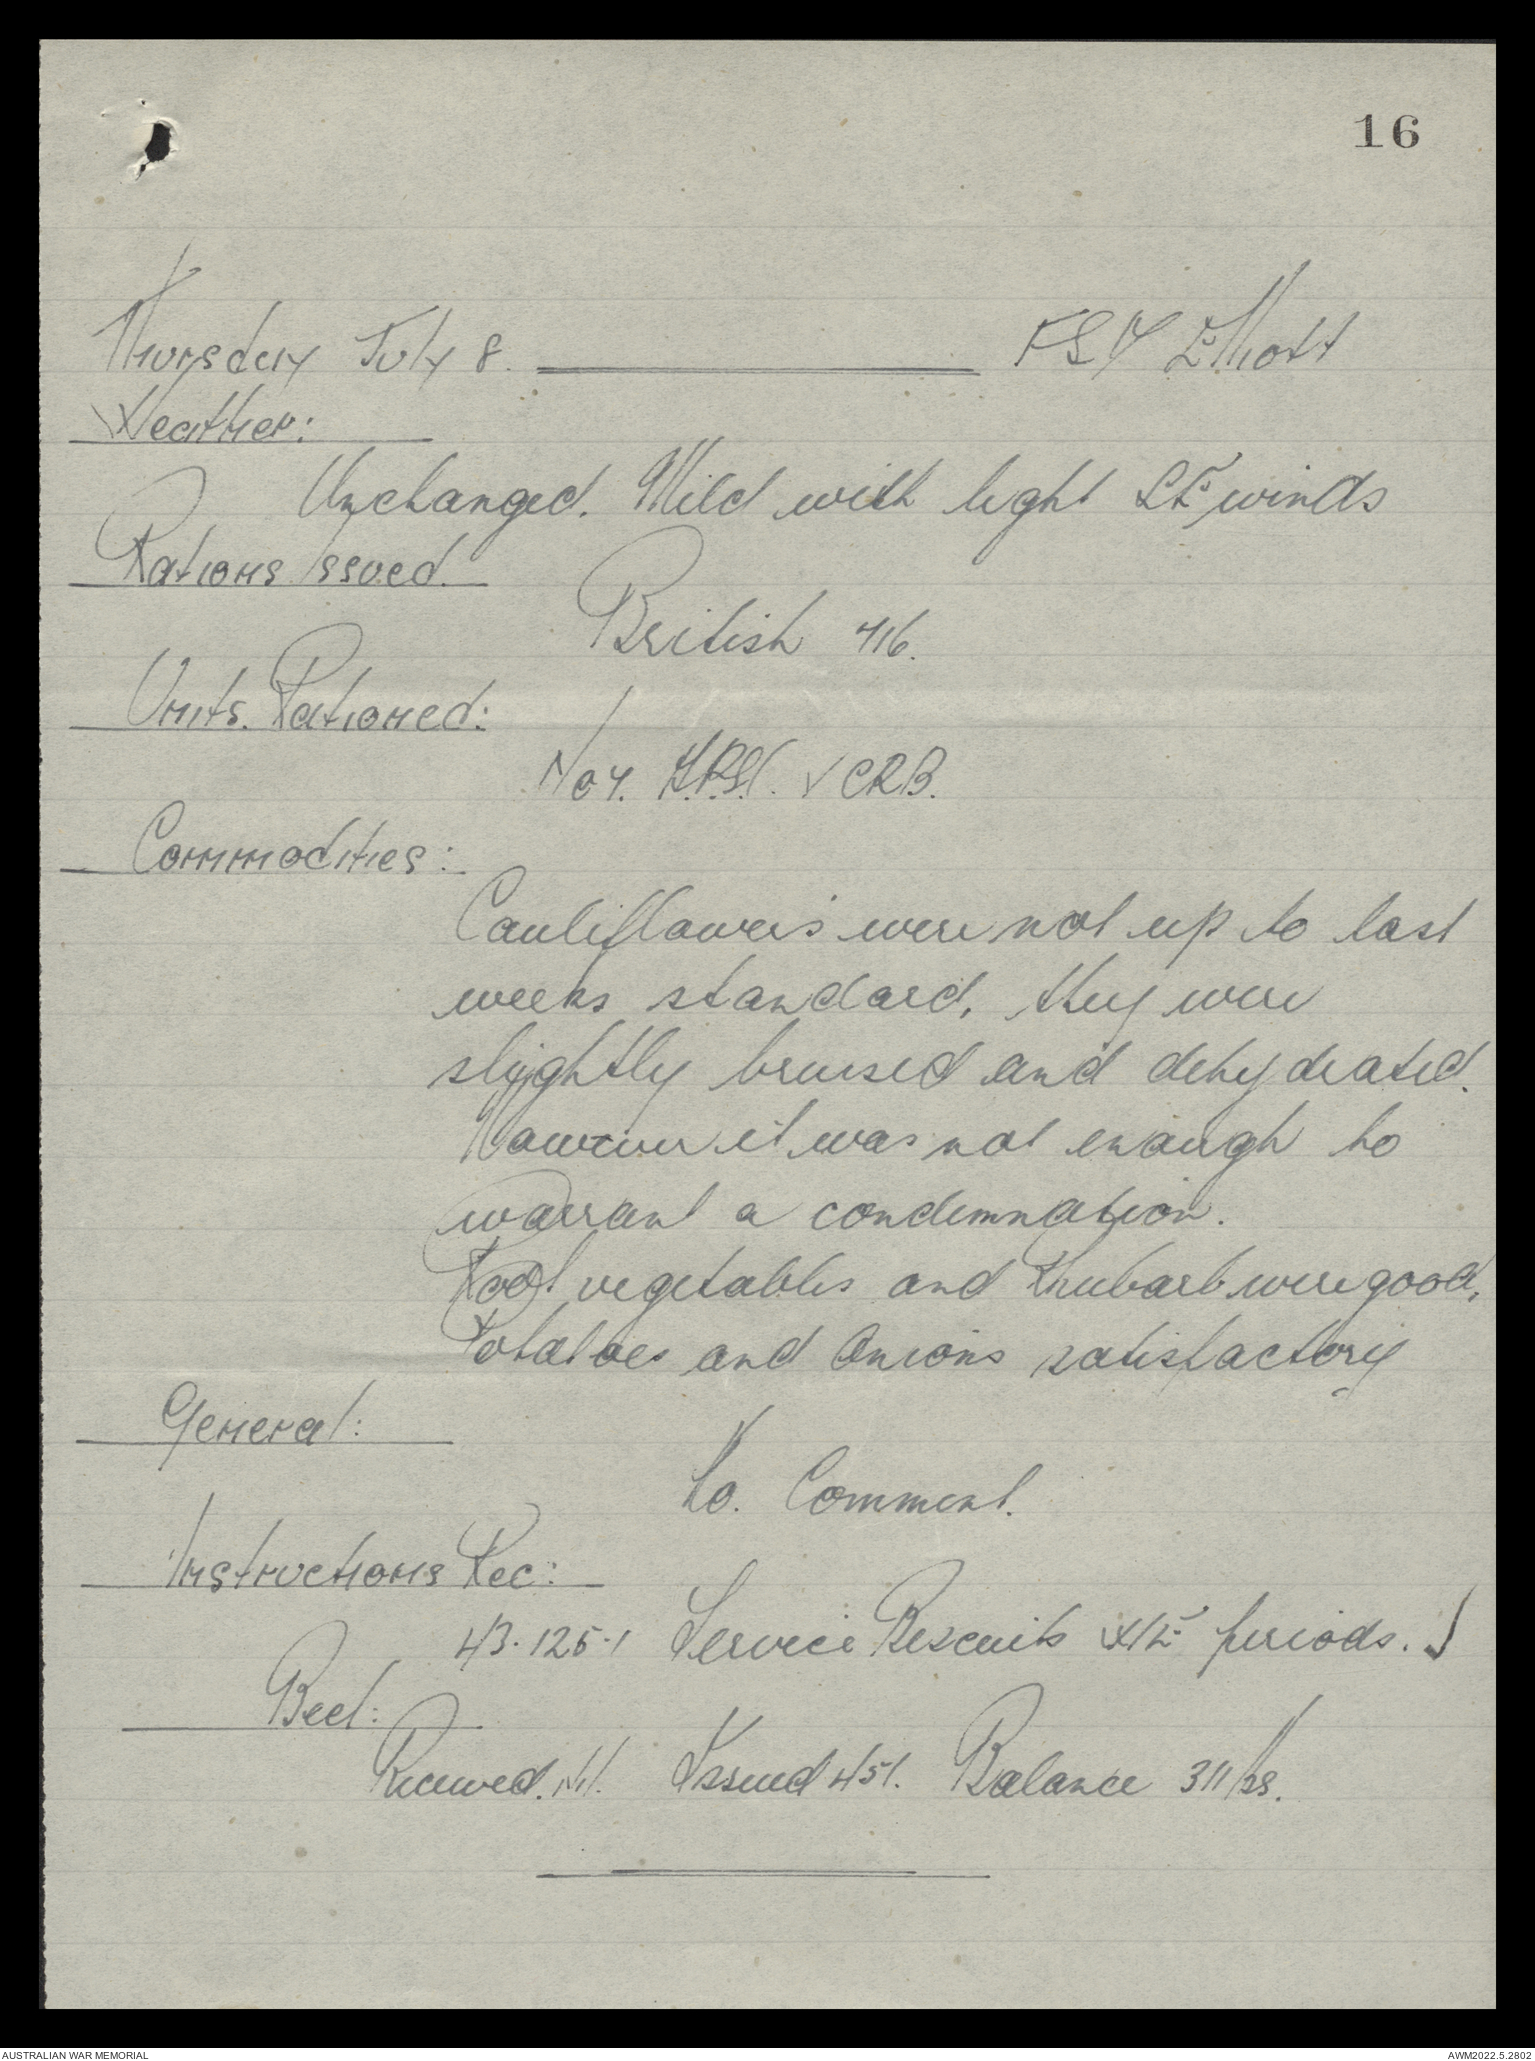 16
Thursday July 8. FSD Elliott
Weather:
Unchanged. Mild with light SE winds
Rations Issued.
British 716.
Units. Rationed:
No 4. & CRB.
Commodities:
Cauliflowers were not up to last
weeks standard, they were
slightly bruised and dehydrated.
However it was not enough to
warrant a condemnation.
Root vegetables and Rhubarb were good,
Potatoes and Onions satisfactory
General:
No. Comment.
Instructions Rec:
43.125.1 Service Biscuits periods.
Beef:
Received. Nil. Issued 451. Balance
AUSTRALIAN WAR MEMORIAL AWM2022.5.2802